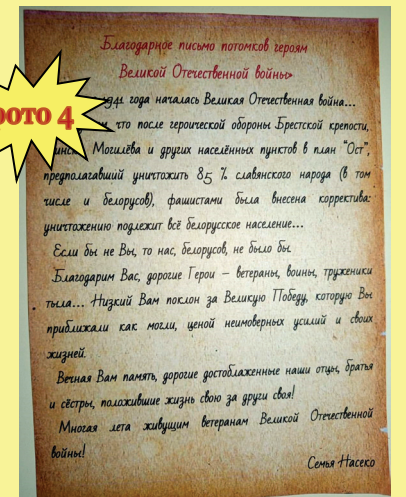 Благодарное письмо потомков героям
Великой Отечественной войны»
1941 года началась Великая Отечественная война...
что после героической обороны Брестской крепости,
Могилёва и других населённых пунктов в план "Ост",
предполагавший уничтожить 85 % славянского народа (в том
числе и белорусов), фашистами была внесена корректива:
уничтожению подлежит всё белорусское население...
Если бы не Вы, то нас, белорусов, не было бы.
Благодарим Вас, дорогие Герои – ветераны, воины, труженики
тыла... Низкий Вам поклон за Великую Победу, которую Вы
приближали как могли, ценой неимоверных усилий и своих
жизней.
Вечная Вам память, дорогие достоблаженные наши отцы, братья
и сёстры, положившие жизнь свою за други своя!
Многая лета живущим ветеранам Великой Отечественной
войны!
Семья Насеко
фото 4